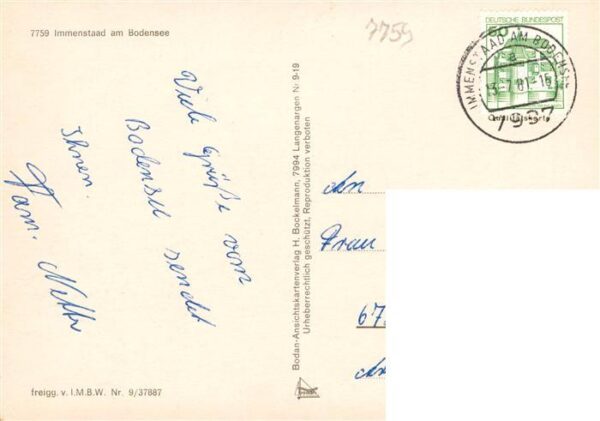 7759 Immenstaad am Bodensee
7759
DEUTSCHE BUNDESPOST
IMMENSTAAD AM BODENSEE
a
13.-7.81-16
7997
Viele Grüße vom
Bodensee sendet
Ihnen
Fam.
Bodan-Ansichtskartenverlag H. Bockelmann, 7994 Langenargen Nr 9-19
Urheberrechtlich geschützt, Reproduktion verboten
An
Frau
67
freigg. v. I.M.B.W. Nr. 9/37887